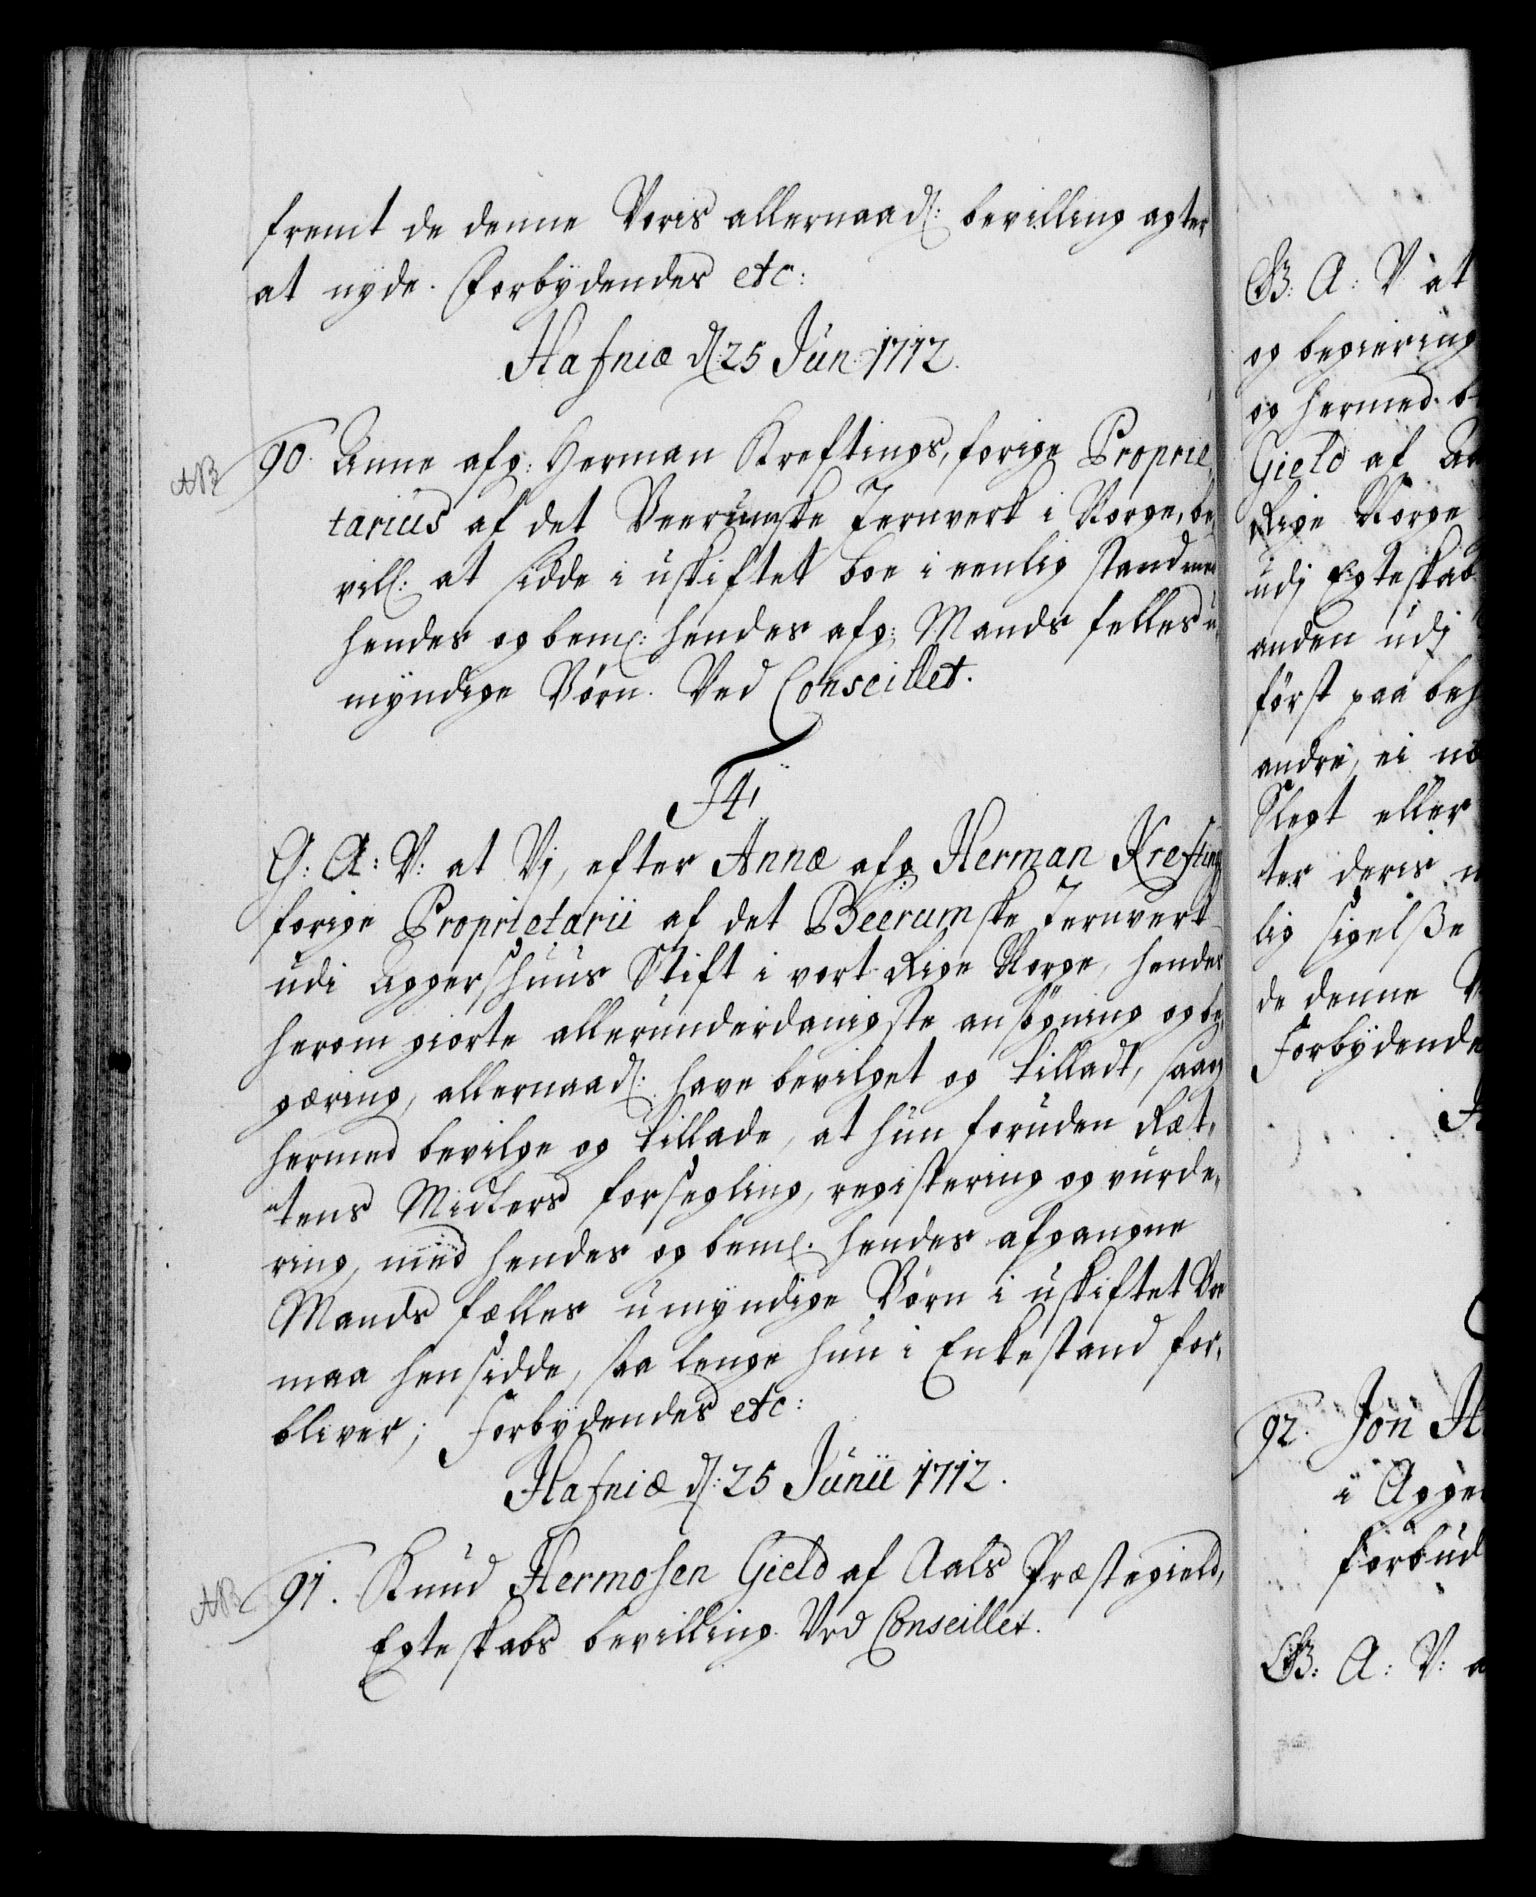 fremt de denne Voris allernaadl: bevilling agter
at nyde. Forbydendes etc:
Hafniæ d. 25 Jun: 1712.
90. Anne afg: Herman Kreftings, forige Proprie,
tarius af det Beerumske Jernverk i Norge, be,
vilg: at sidde i uskiftet boe i eenlig stand med
hendes og bemt: hendes afg: Mands felles u,
myndige Børn. Ved Conseillet.
F4
G. A: V: at Vj, efter Annæ afg: Herman Krefting
forige Proprietarii af det Beerumske Jernverk
udi Aggershuus Stift i vort Rige Norge, hendes
herom giorte allerunderdanigste ansøgning og be,
gæring, allernaadl: have bevilget og tilladt, saa og
hermed bevilge og tillade, at hun foruden Ret,
tens Midlers forsegling, registering og vurde,
ring, med hendes og bemt. hendes afgangne
Mands fælles umyndige Børn i uskiftet Boe
maa hensidde, saa lenge hun i Enkestand for,
bliver; Forbydendes etc:
Hafniæ d: 25 Junii 1712.
91. Knud Hermosen Gield af Aals Præstegield,
Egteskabs bevilling. Ved Conseillet.
B: A: V at
og begiering
og hermed b
Gield af
Rige Norge
udj Egteskab
anden udj
først paa
andre, ei
Slegt eller
ter deris
lig
de denne
Forbydende
92. Jon H
i Agger
forbud
B: A: V: a